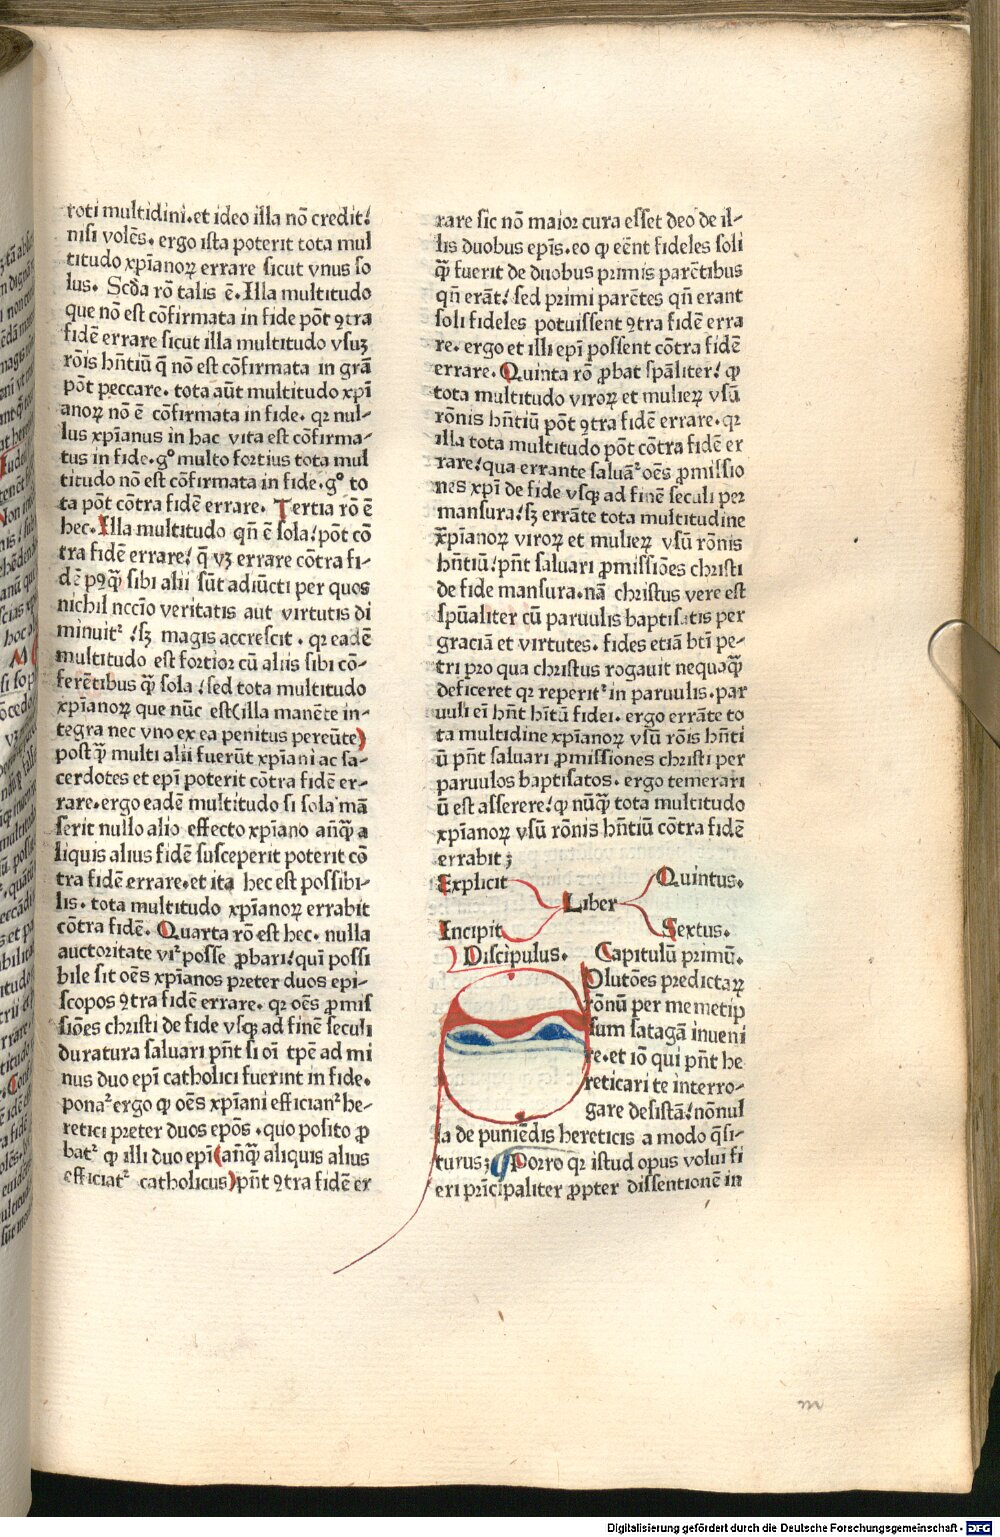 toti multidini.et ideo illa nō credit᷑
nisi volēs. ergo ista poterit tota mul
titudo xp̄ianoꝝ errare sicut vnus so
lus. Scd̄a rō talis ē. Illa multitudo
que nō est cōfirmata in fide pōt ꝯtra
fidē errare sicut illa multitudo vsuꝫ
rōis hn̄tiū q̄ nō est cōfirmata in grā
pōt peccare. tota aūt multitudo xp̄i
anoꝝ nō ē cōfirmata in fide. qꝛ nul-
lus xp̄ianus in hac vita est cōfirma-
tus in fide.gͦ multo fortius tota mul
titudo nō est cōfirmata in fide.gͦ to
ta pōt cōtra fidē errare. Tertia rō ē
hec. Illa multitudo qn̄ ē sola/pōt cō
tra fidē errare/ q̄ vꝫ errare cōtra fi-
dē pꝰqꝫ̄ sibi alii sūt adiūcti per quos
nichil nccīo veritatis aut virtutis di
minuit᷑ /sꝫ magis accrescit. qꝛ eadē
multitudo est fortior cū aliis sibi cō-
ferētibus qꝫ̄ sola /sed tota multitudo
xp̄ianoꝝ que nūc est(illa manēte in-
tegra nec vno ex ea penitus pereūte)
postqꝫ̄ multi alii fuerūt xp̄iani ac sa-
cerdotes et ep̄i poterit cōtra fidē er-
rare.ergo eadē multitudo si sola mā
serit nullo alio effecto xp̄iano an̄qꝫ̄ a
liquis alius fidē susceperit poterit cō
tra fidē errare.et ita hec est possibi-
lis. tota multitudo xp̄ianoꝝ errabit
cōtra fidē. Quarta rō est hec. nulla
auctoritate vi᷑ posse ꝓbari/quī possi
bile sit oēs xp̄ianos preter duos epi-
scopos ꝯtra fidē errare. qꝛ oēs ꝓmis
siōes christi de fide vsqꝫ ad finē seculi
duratura saluari pn̄t si oī tp̄e ad mi
nus duo ep̄i catholici fuerint in fide.
pona᷑ ergo ꝙ oēs xp̄iani efficiant᷑ he-
retici preter duos ep̄os .quo posito ꝓ
bat᷑ ꝙ illi duo ep̄i(an̄qꝫ̄ aliquis alius
efficiat᷑ catholicus)pn̄t ꝯtra fidē er
rare sic nō maior cura esset deo de il-
lis duobus ep̄is.eo ꝙ eēnt fideles soli
qꝫ̄ fuerit de duobus primis parētibus
qn̄ erāt/ sed primi parētes qn̄ erant
soli fideles potuissent ꝯtra fidē erra
re. ergo et illi ep̄i possent cōtra fidē
errare. Quinta rō ꝓbat sp̄aliter/ ꝙ
tota multitudo viroꝝ et mulieꝝ vsū
rōnis hn̄tiū pōt ꝯtra fidē errare. qꝛ
illa tota multitudo pōt cōtra fidē er
rare/qua errante saluā᷑ oēs ꝓmissio
nes xp̄i de fide vsqꝫ ad finē seculi per
mansura/sꝫ errāte tota multitudine
xp̄ianoꝝ viroꝝ et mulieꝝ vsū rōnis
hn̄tiū/pn̄t saluari ꝓmissiōes christi
de fide mansura.nā christus vere est
sp̄ualiter cū paruulis baptisatis per
graciā et virtutes. fides etiā bt̄i pe-
tri pro qua christus rogauit nequaqꝫ̄
deficeret qꝛ reperit᷑ in paruulis.par
uuli eī hn̄t hītū fidei. ergo errāte to
ta multidine xp̄ianoꝝ vsū rōis hn̄ti
ū pn̄t saluari ꝓmissiones christi per
paruulos baptisatos. ergo temerari
ū est asserere/ꝙ nūqꝫ̄ tota multitudo
xp̄ianoꝝ vsū rōnis hn̄tiū cōtra fidē
errabit;
Explicit Liber Quintus.
Incipit Sextus.
Discipulus. Capitulū primū.
Olutōes predictaꝝ
rōnū per me metip
sum satagā inueni
re.et iō qui pn̄t he
reticari te interro-
gare desistā/nōnul
la de puniēdis hereticis a modo q̄si-
turus; Porro qꝛ istud opus volui fi
eri prīcipaliter ꝓpter dissentionē in
m
Digitalisierung gefördert durch die Deutsche Forschungsgemeinschaft - DFG